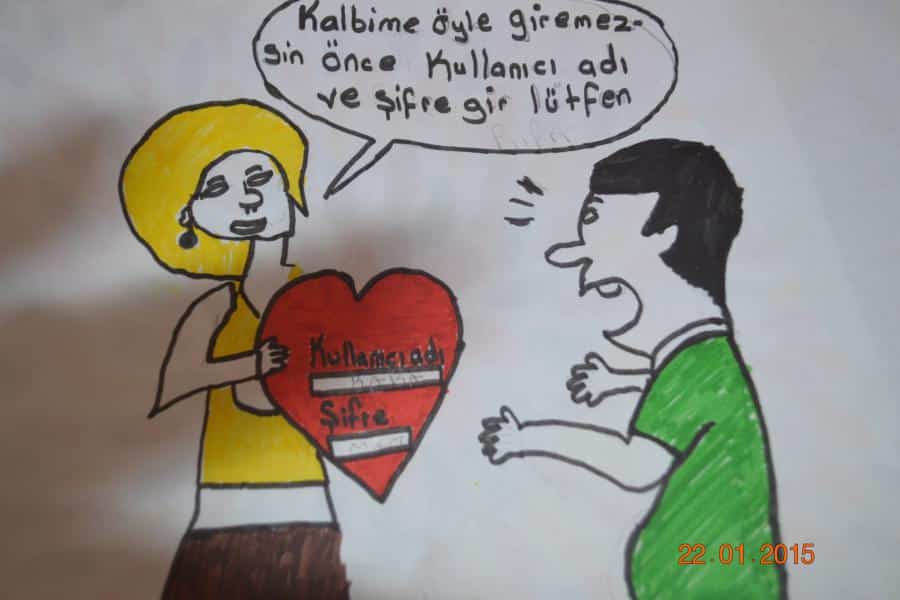 Kalbime öyle giremez-
sin önce Kullanıcı adı
ve şifre gir lütfen
Kullanıcı adı
Şifre
22.01.2015